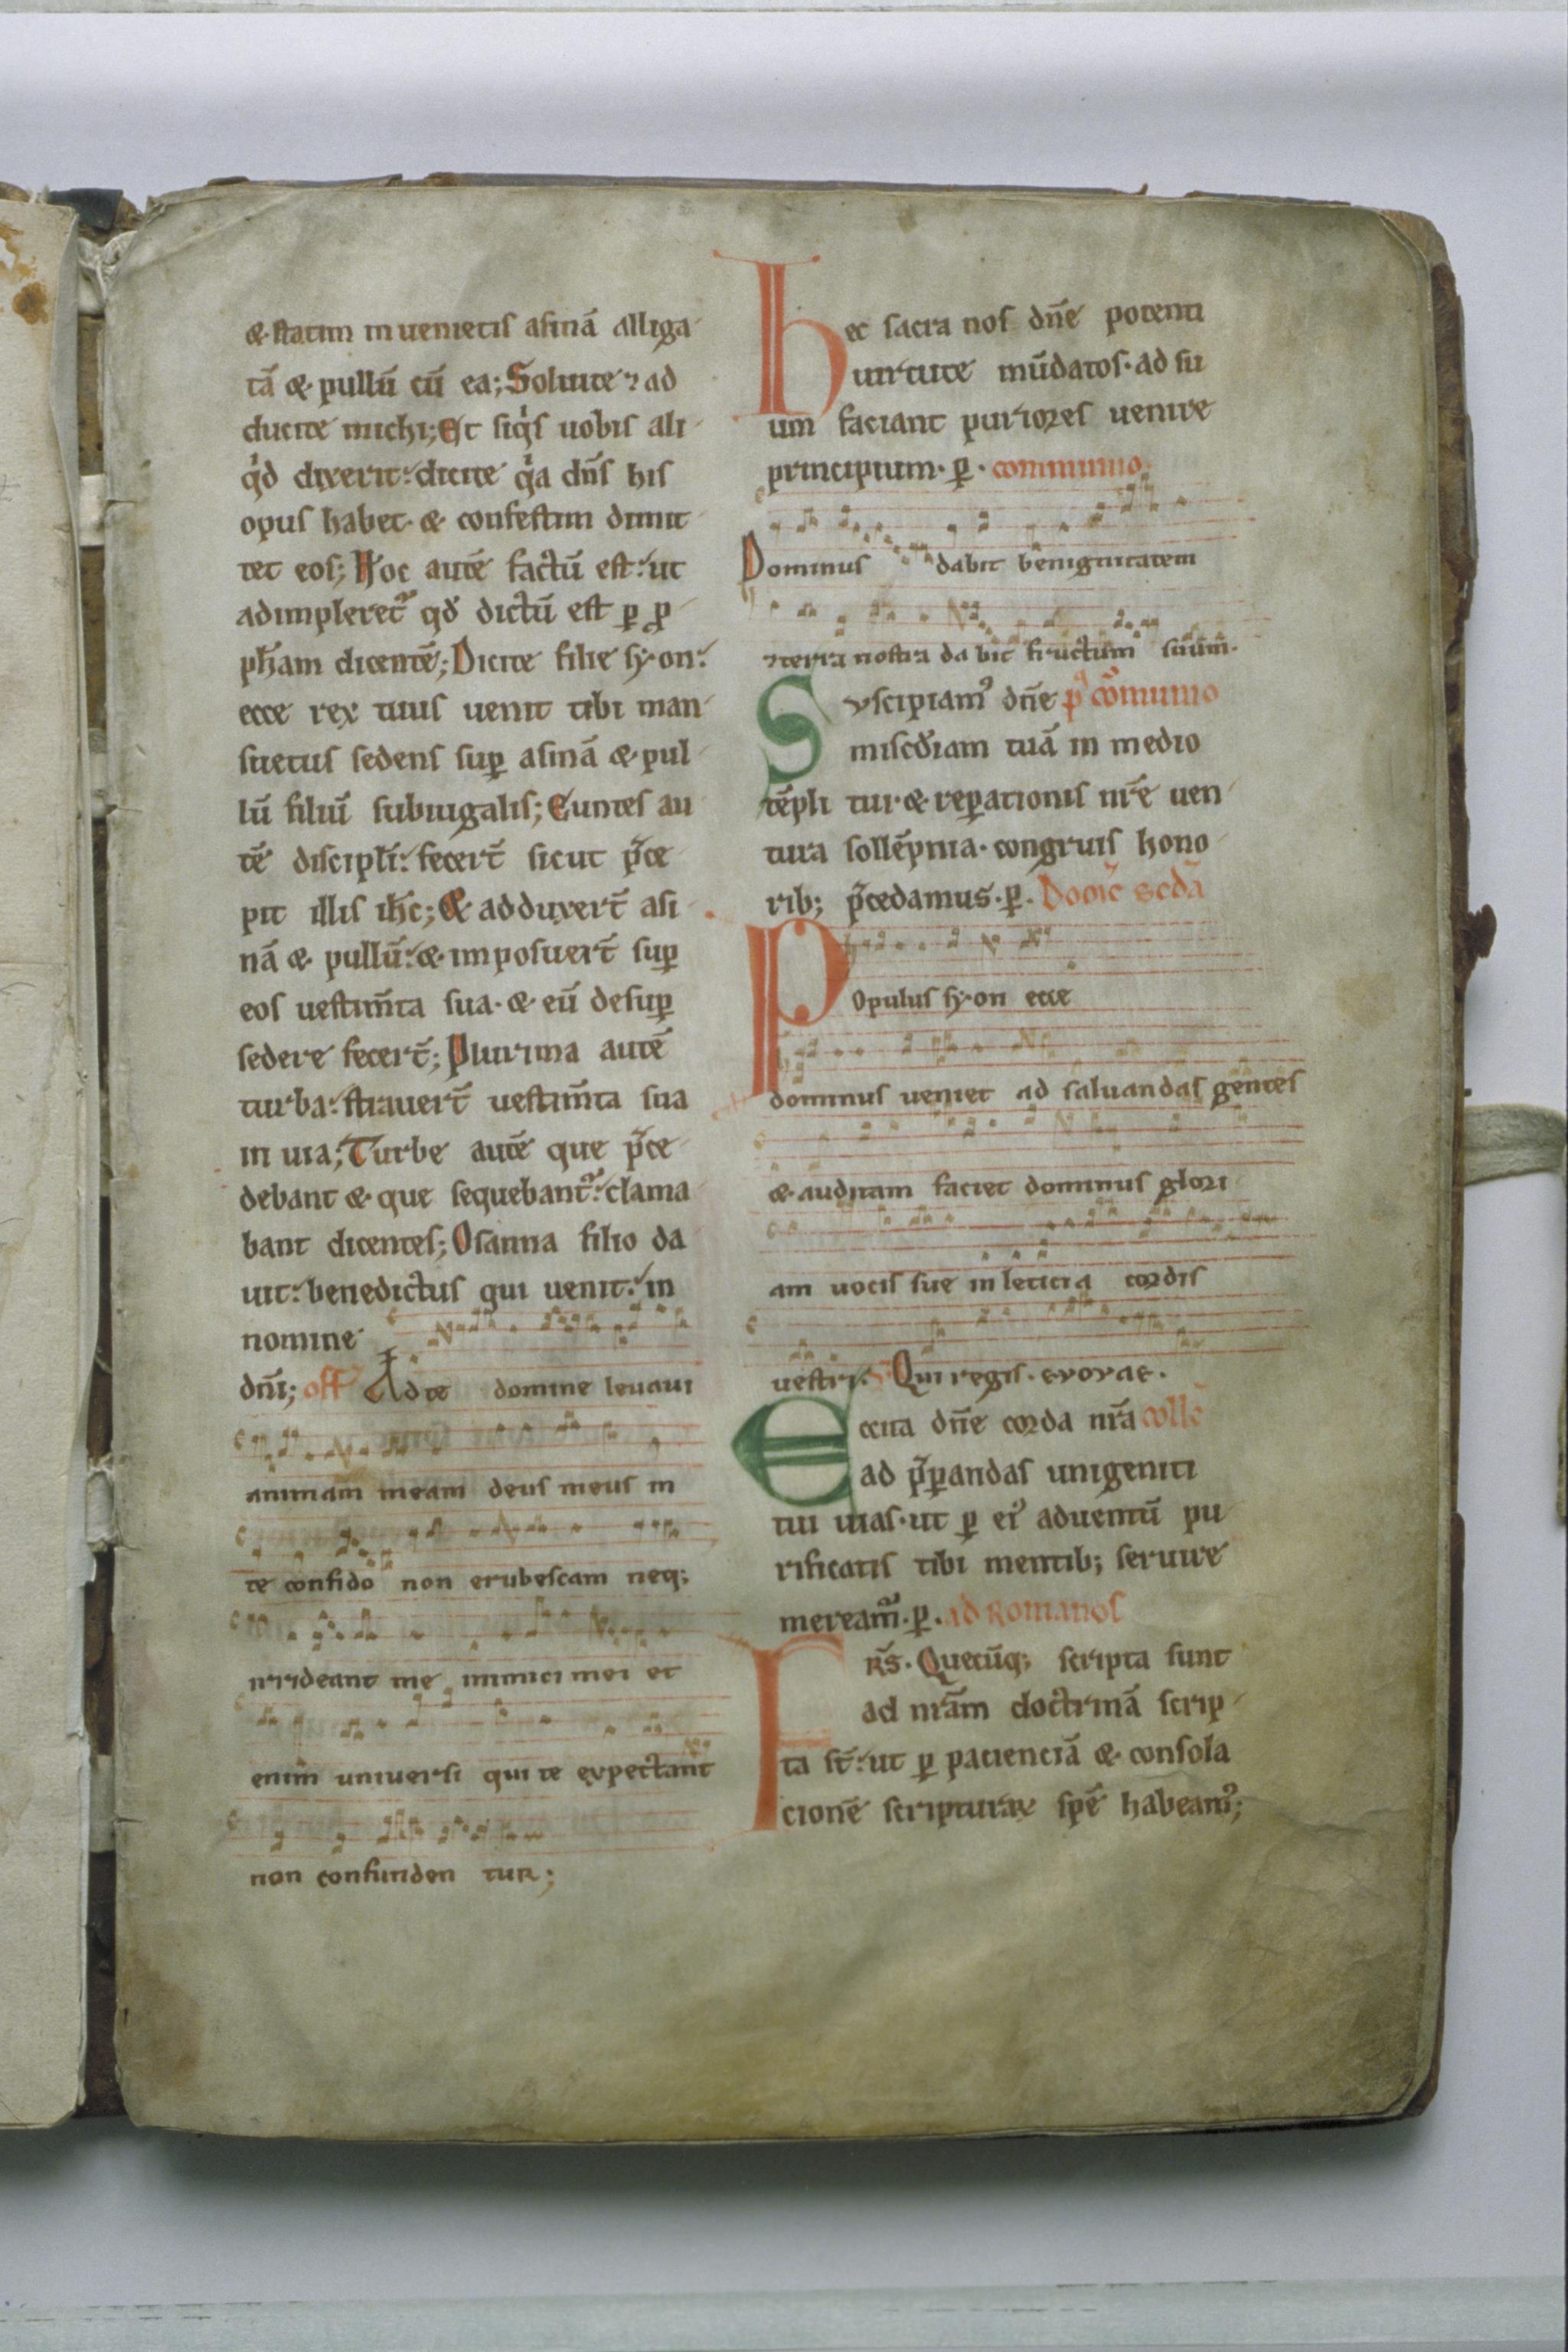 & statim inuenietis asinā alliga
tā & pullū cū ea; Soluite ⁊ ad
ducite michi; Et siq̍s uobis ali
q̍d dixerit: dicite q̍a dn̄s his
opus habet & confestim dimit
tet eos; Hoc autē factū est: ut
adimpleret᷑ qd̄ dictū est ꝑ ꝓ
ph̄am dicentē; Dicite filie sẏon:
ecce rex tuus uenit tibi man
suetus sedens suꝑ asinā & pul
lū filiū subiugalis; Euntes au
tē discipl̄i: fecer̄t sicut p̄ce
pit illis ih̄c; & adduxer̄t asi
nā & pullū: & imposuer̄t suꝑ
eos uestim̄ta sua & eū desuꝑ
sedere fecer̄t; Plurima autē
turba: strauer̄t uestim̄ta sua
in uia; Turbe autē que p̄ce
debant & que sequebant᷑: clama
bant dicentes; Osanna filio da
uit: benedictus qui uenit: in
nomine
dn̄i; off̄ Ad te domine leuaui
animam meam deus meus in
te confido non erubescam neq;
irrideant me inimici mei et
enim uniuersi qui te expectant
non confunden tur;
Hec sacra nos dn̄e potenti
uirtute mūdatos· ad su
um faciant puriores uenire
principium· ꝑ· communio
Dominus dabit benignitatem
⁊ terra nostra dabit fructum suum·
Suscipiam᷒ dn̄e p᷒ cōmunio
misc̄diam tuā in medio
tēpli tui· & reꝑationis nr̄e uen
tura sollēpnia· congruis hono
rib; p̄cedamus· ꝑ· Domīc scdā
Populus sẏon ecce
dominus ueniet ad saluandas gentes
& auditam faciet dominus glori
am uocis sue in leticia cordis
uestri: Qui regis· evovae·
Excita dn̄e corda nr̄a coll̄c
ad p̄ꝑandas unigeniti
tui uias· ut ꝑ ei᷒ aduentū pu
rificatis tibi mentib; seruire
meream᷒· ꝑ· ad Romanos
Fr̄s· Quecūq; scripta sunt
ad nr̄am doctrinā scrip
ta st̄: ut ꝑ pacienciā & consola
cionē scripturaꝝ spē habeam᷒;